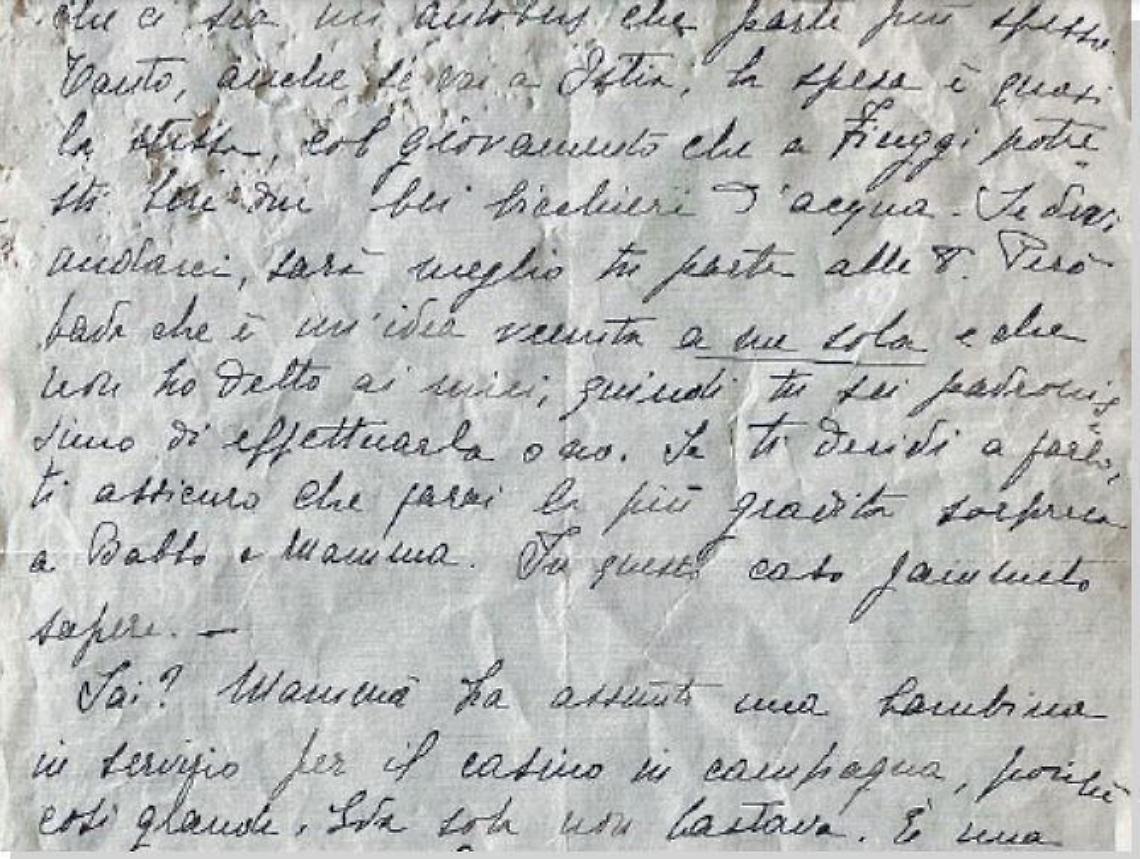 che ci sia un autobus che parte più spesso.
Tanto, anche se vai a Ostia, la spesa è quasi
la stessa, col giovamento che a Fiuggi potre
sti bere due bei bicchieri d'acqua. Se devi
andarci, sarà meglio tu parta alle 8. Però
bada che è un'idea venuta a me sola e che
non ho detto ai miei, quindi tu sei padronis
simo di effettuarla o no. Se ti decidi a farlo,
ti assicuro che farai la più gradita sorpresa
a Babbo e Mamma. In questo caso fammelo
sapere. —
Sai? Mammà ha assunto una bambina
in servizio per il casino in campagna, poichè
così grande, Ida sola non bastava. È una